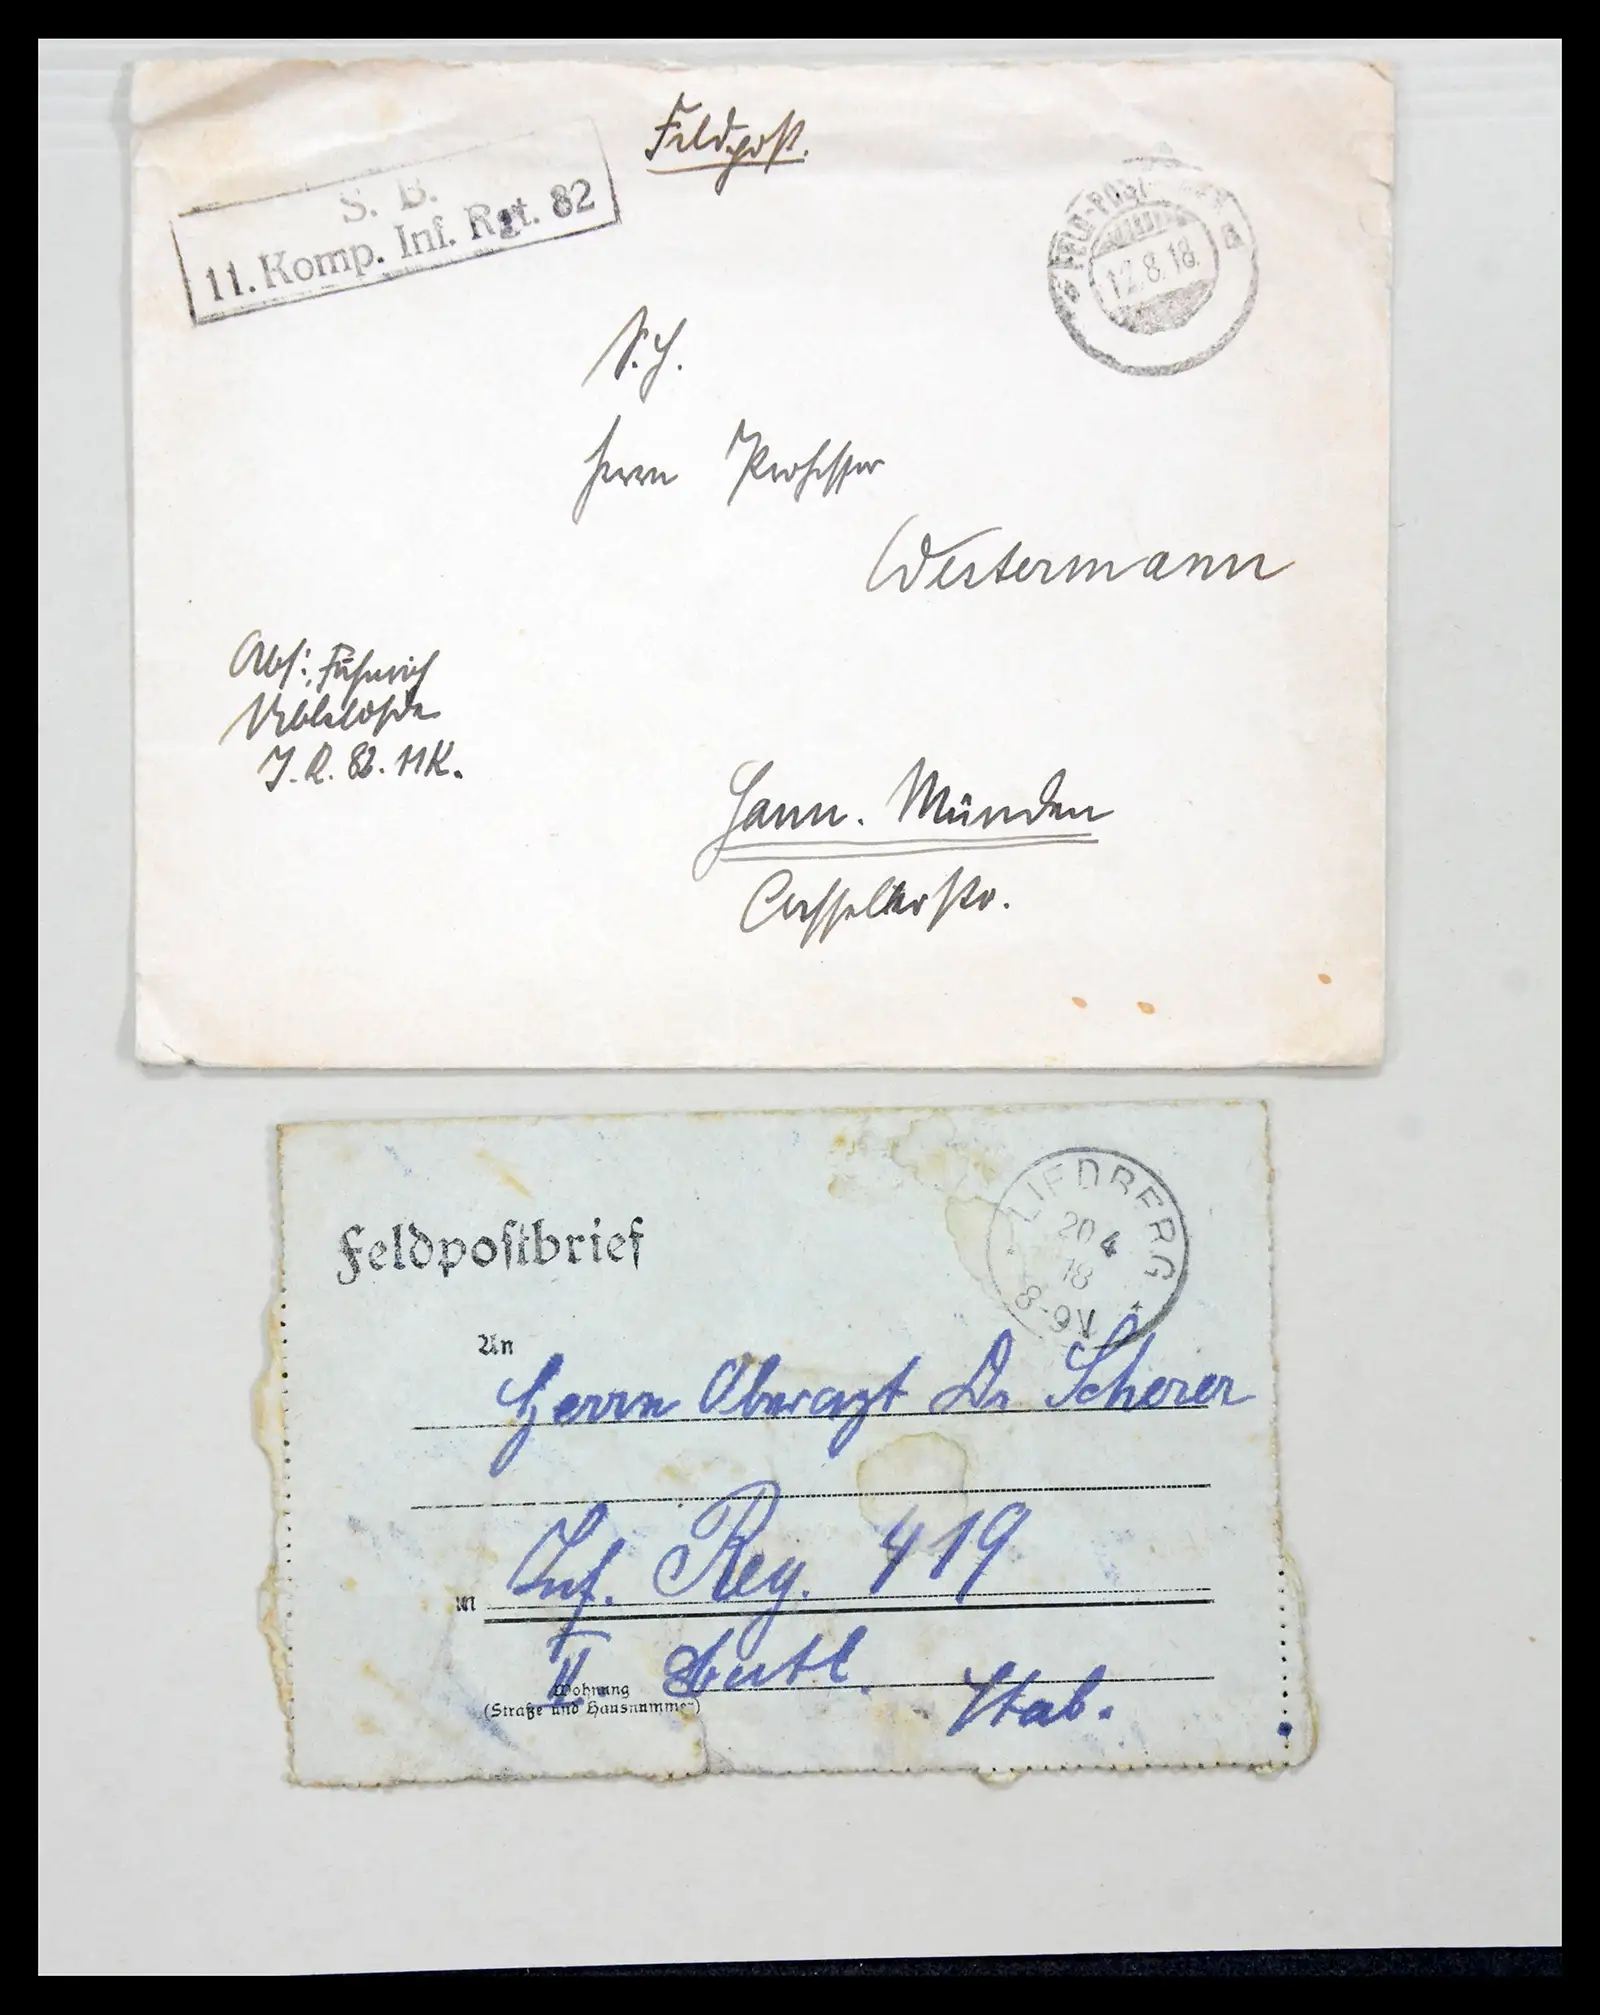 Feldpost.
S. B.
11. Komp. Inf. Rgt. 82
12.8.18.
S. H.
Herrn Professor
Westermann
Abs: Fähnrich
J. R. 82. 11 K.
Hann. Münden
Casselerstr.
Feldpostbrief
LIEDBERG
20 4
18
8-9V
An
Herrn Oberarzt Dr Scherer
Inf. Reg. 419
in
II Batl. Stab.
Wohnung
(Straße und Hausnummer)